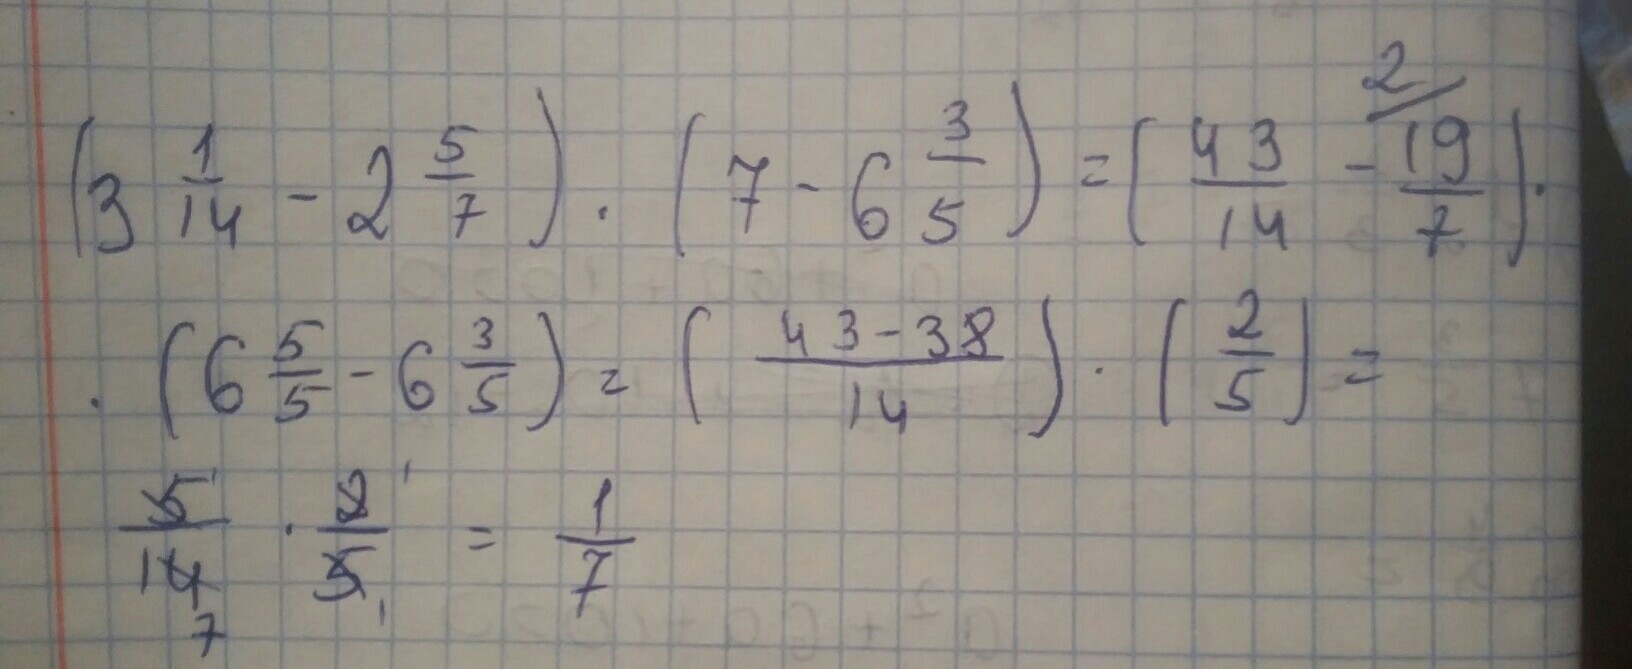 (3 1/14 - 2 5/7) · (7 - 6 3/5) = (43/14 - 19/7 2/) ·
· (6 5/5 - 6 3/5) = (43-38/14) · (2/5) =
5/14 1 7 · 2/5 1 1 = 1/7